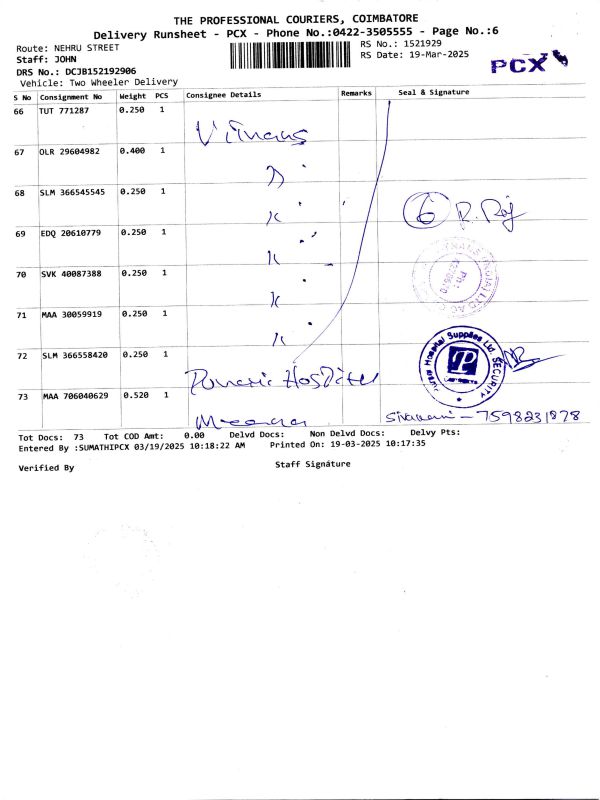 THE PROFESSIONAL COURIERS, COIMBATORE
Delivery Runsheet - PCX - Phone No.:0422-3505555 - Page No.:6
Route: NEHRU STREET
RS No.: 1521929
Staff: JOHN
RS Date: 19-Mar-2025
PCX
DRS No.: DCJB152192906
Vehicle: Two Wheeler Delivery
S No Consignment No Weight PCS Consignee Details Remarks Seal & Signature
66 TUT 771287 0.250 1
67 OLR 29604982 0.400 1
68 SLM 366545545 0.250 1
6 R. Raj
69 EDQ 20610779 0.250 1
70 SVK 40087388 0.250 1
71 MAA 30059919 0.250 1
72 SLM 366558420 0.250 1
Hospital Supplies Ltd. SECURITY
73 MAA 706040629 0.520 1
7598231878
Tot Docs: 73 Tot COD Amt: 0.00 Delvd Docs: Non Delvd Docs: Delvy Pts:
Entered By :SUMATHIPCX 03/19/2025 10:18:22 AM Printed On: 19-03-2025 10:17:35
Verified By Staff Signature